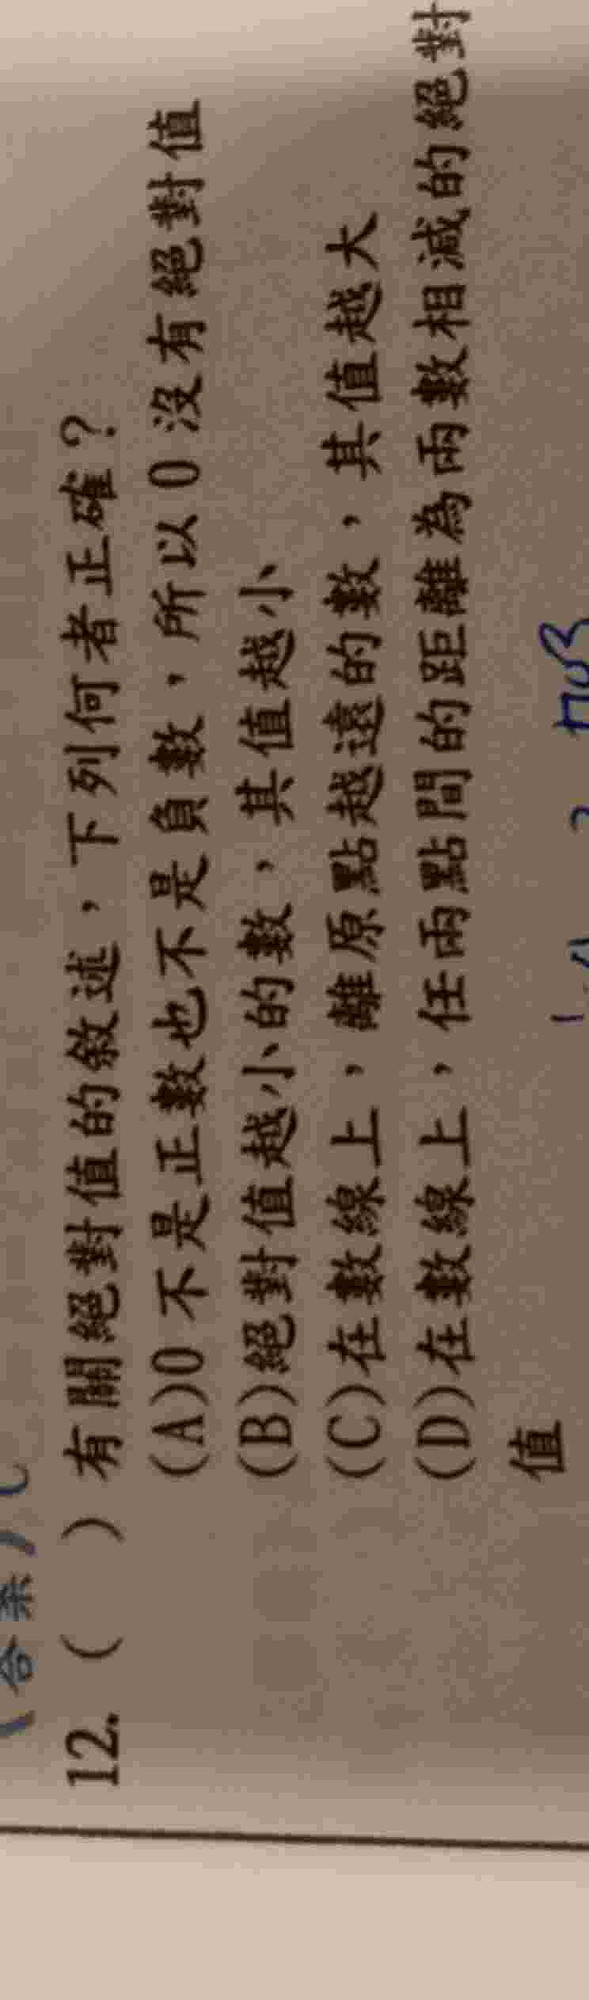 (答案)
12. (　) 有關絕對值的敘述，下列何者正確？
(A)0 不是正數也不是負數，所以 0 沒有絕對值
(B)絕對值越小的數，其值越小
(C)在數線上，離原點越遠的數，其值越大
(D)在數線上，任兩點間的距離為兩數相減的絕對
值